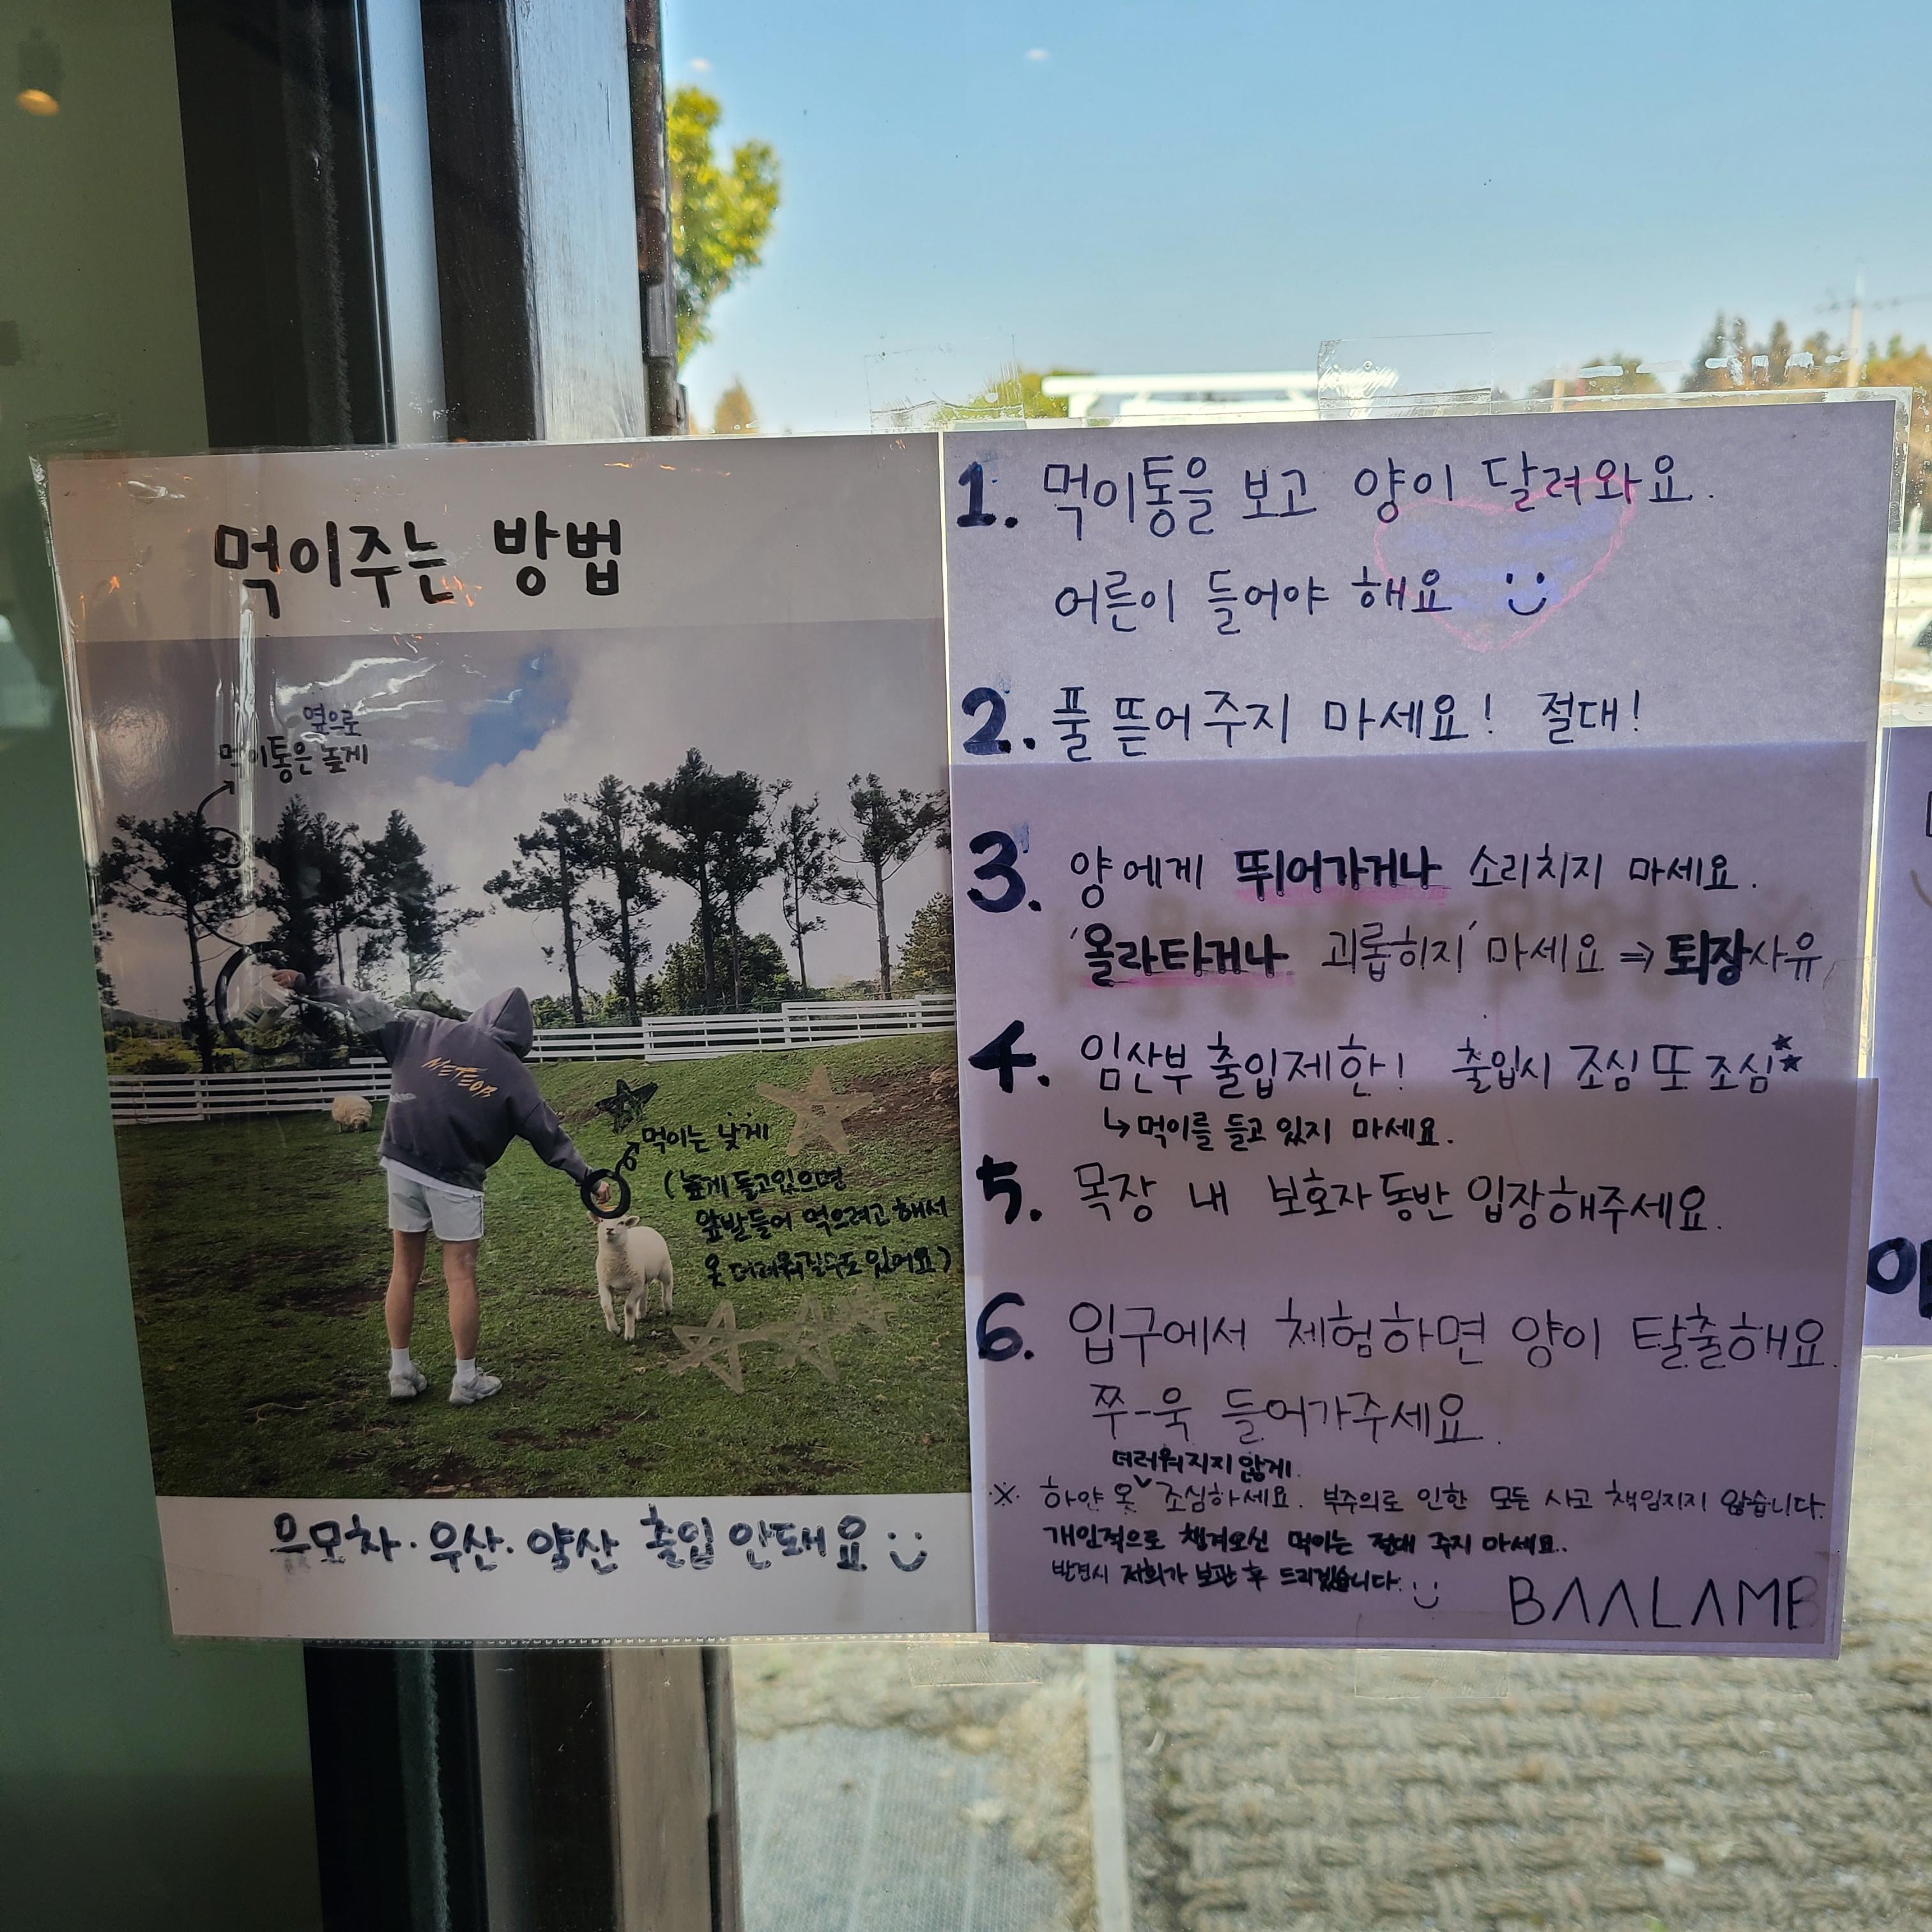 먹이주는 방법
옆으로
먹이통은 높게
METEOR
먹이는 낮게
(높게 들고있으면
앞발들어 먹으려고 해서
옷 더러워질수도 있어요)
유모차·우산·양산 출입 안돼요
1. 먹이통을 보고 양이 달려와요.
어른이 들어야 해요
2. 풀 뜯어주지 마세요! 절대!
3. 양에게 뛰어가거나 소리치지 마세요.
'올라타거나 괴롭히지' 마세요 ⇒ 퇴장사유
4. 임산부 출입제한! 출입시 조심 또 조심
↳ 먹이를 들고 있지 마세요.
5. 목장 내 보호자 동반 입장해주세요.
6. 입구에서 체험하면 양이 탈출해요.
쭈-욱 들어가주세요.
더러워지지 않게.
※ 하얀 옷 조심하세요. 부주의로 인한 모든 사고 책임지지 않습니다.
개인적으로 챙겨오신 먹이는 절대 주지 마세요..
발견시 저희가 보관 후 드리겠습니다.
BAALAMB